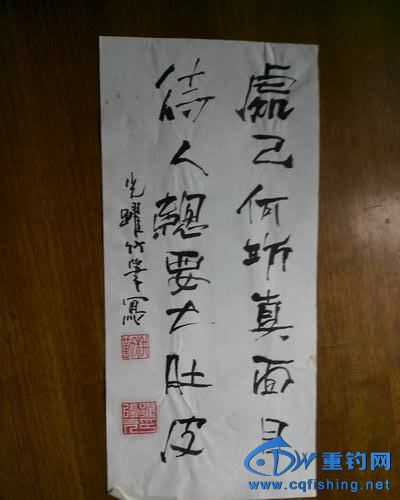 處己何妨真面目
待人總要大肚皮
光耀竹筆寫
重钓网
www.cqfishing.net